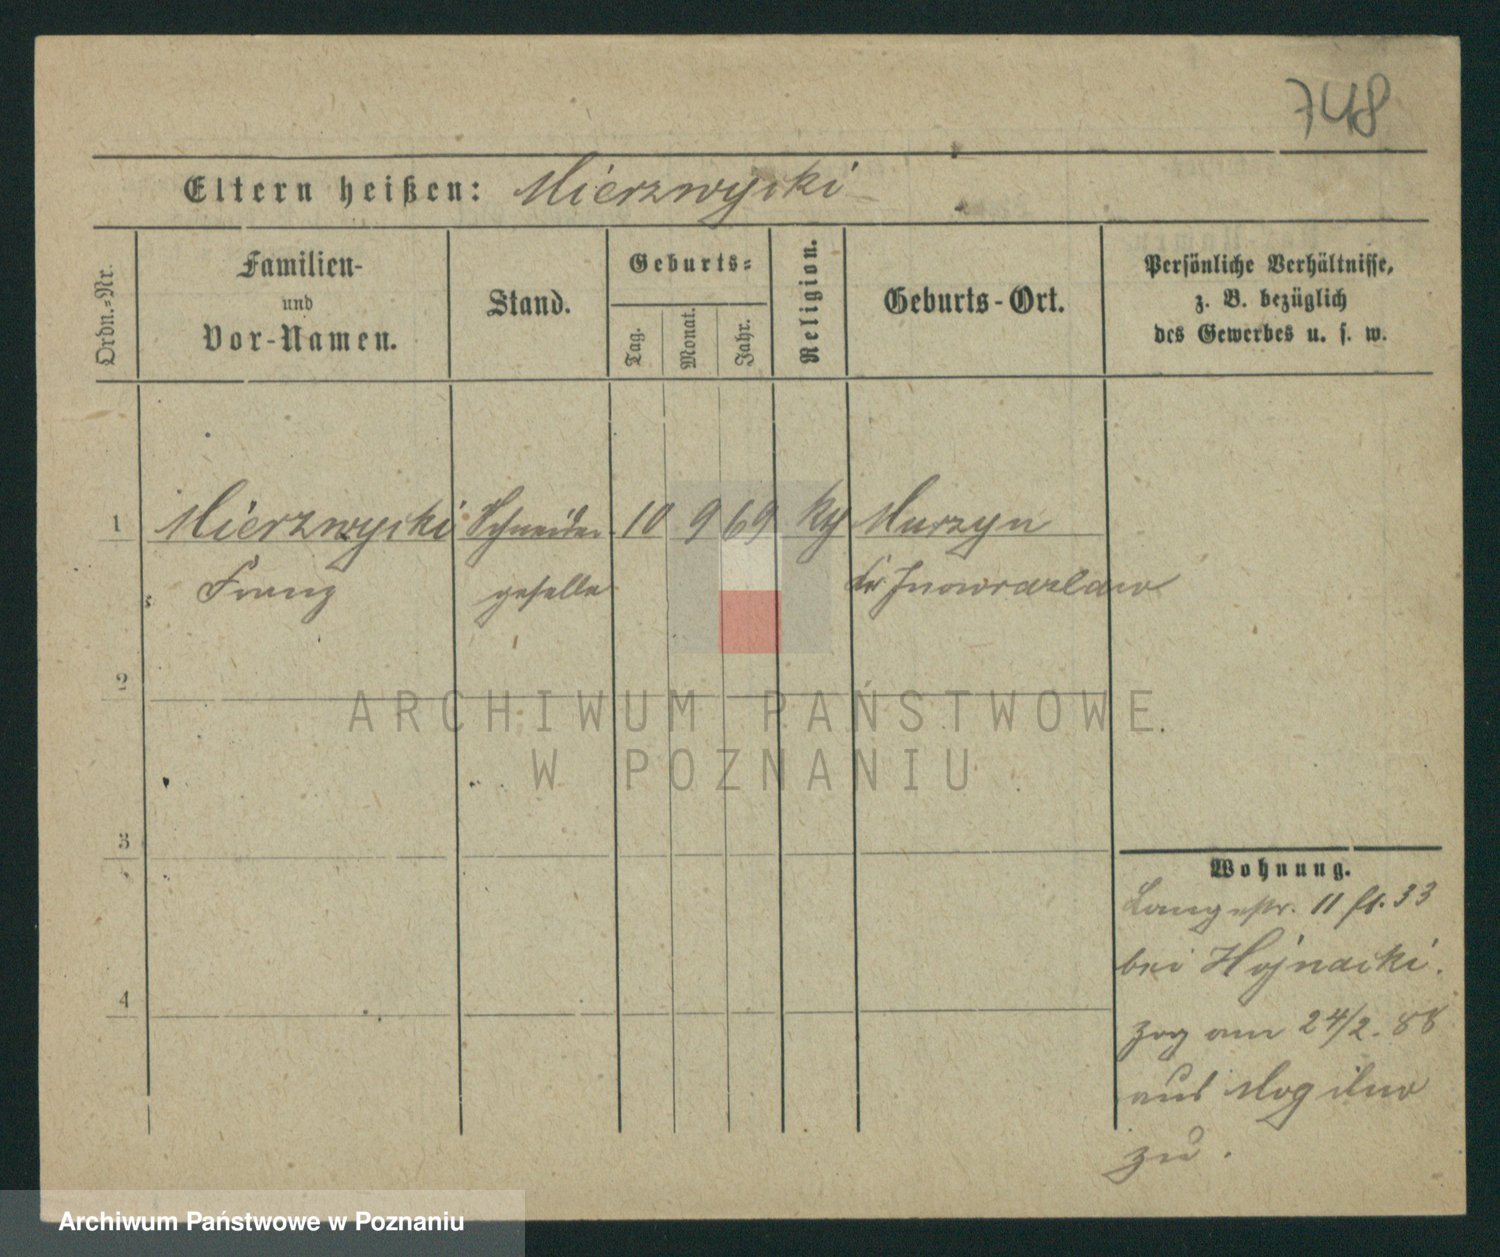 748
Eltern heißen: Mierzwycki
Ordn.-Nr.
Familien-
und
Vor-Namen.
Stand.
Geburts-
Tag.
Monat.
Jahr.
Religion.
Geburts-Ort.
Persönliche Verhältnisse,
z. B. bezüglich
des Gewerbes u. s. w.
1 Mierzwycki Schneider 10 9 69 Murzyn
Franz geselle Kr Inowrazlaw
2
3
4
ARCHIWUM PAŃSTWOWE
W POZNANIU
Wohnung.
Langestr. 11 33
bei Hojnacki.
zog am 24/2. 88
aus Mogilno
zu.
Archiwum Państwowe w Poznaniu